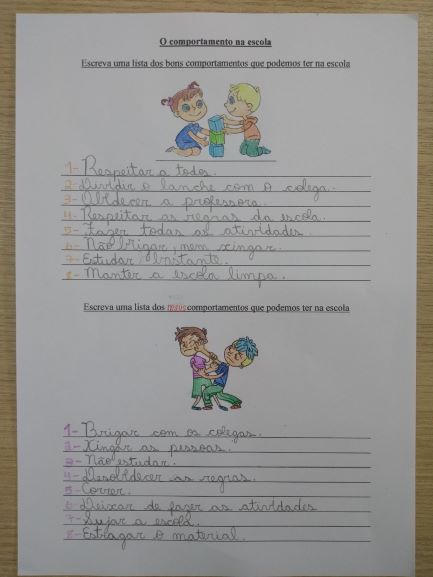 O comportamento na escola
Escreva uma lista dos bons comportamentos que podemos ter na escola
1- Respeitar a todos.
2- Dividir o lanche com o colega.
3- Obedecer a professora.
4- Respeitar as regras da escola.
5- Fazer todas as atividades.
6- Não brigar, nem xingar.
7- Estudar bastante.
8- Manter a escola limpa.
Escreva uma lista dos maus comportamentos que podemos ter na escola
1- Brigar com os colegas.
2- Xingar as pessoas.
3- Não estudar.
4- Desobedecer as regras.
5- Correr.
6- Deixar de fazer as atividades
7- Sujar a escola.
8- Estragar o material.